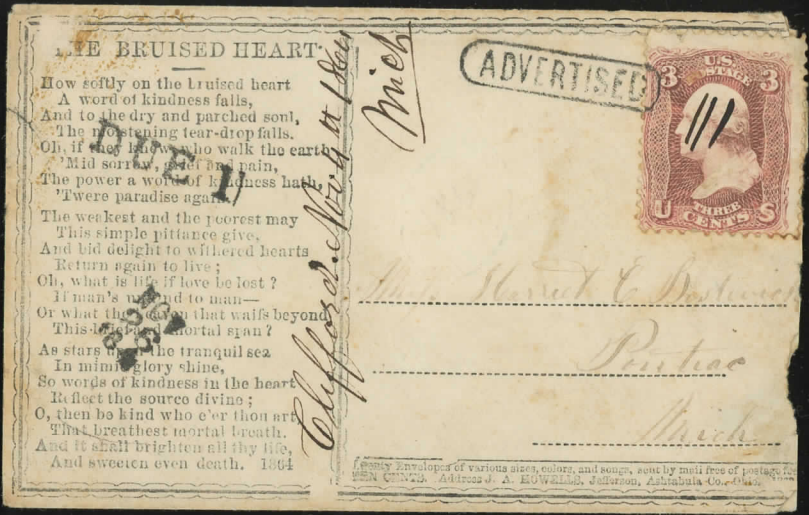 THE BRUISED HEART.
How softly on the bruised heart
A word of kindness falls,
And to the dry and parched soul,
The moistening tear-drop falls.
Oh, if they knew who walk the earth
'Mid sorrow, grief and pain,
The power a word of kindness hath,
'Twere paradise again.
The weakest and the poorest may
This simple pittance give,
And bid delight to withered hearts
Return again to live;
Oh, what is life if love be lost?
If man's unkind to man—
Or what the heaven that waits beyond
This brief and mortal span?
As stars upon the tranquil sea
In mimic glory shine,
So words of kindness in the heart
Reflect the source divine;
O, then be kind who e'er thou art,
That breathest mortal breath.
And it shall brighten all thy life,
And sweeten even death. 1864
DUE 1
Clifford. Nov 4th 1864
Mich
ADVERTISED
3 U.S. POSTAGE 3
U THREE CENTS S
Miss Harriet E Bostwick
Pontiac
Mich
Envelopes of various sizes, colors, and songs, sent by mail free of postage for
TEN CENTS. Address J. A. HOWELLS, Jefferson, Ashtabula Co., Ohio.